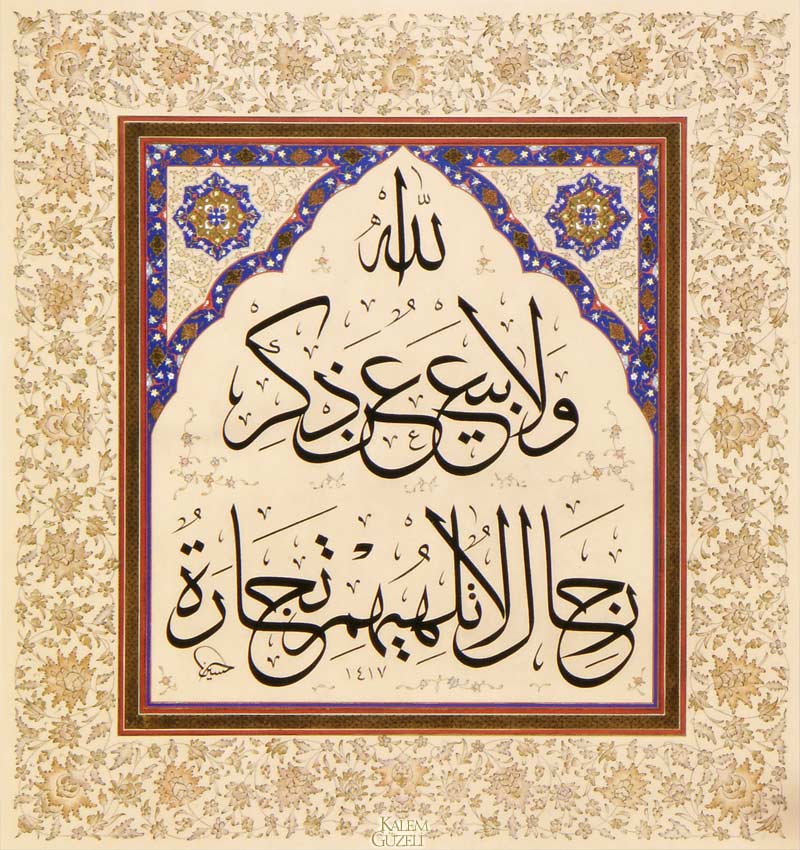 رِجَالٌ لَا تُلْهِيهِمْ تِجَارَةٌ
وَلَا بَيْعٌ عَنْ ذِكْرِ
اللّٰهِ
١٤١٧
KALEM
GÜZELİ